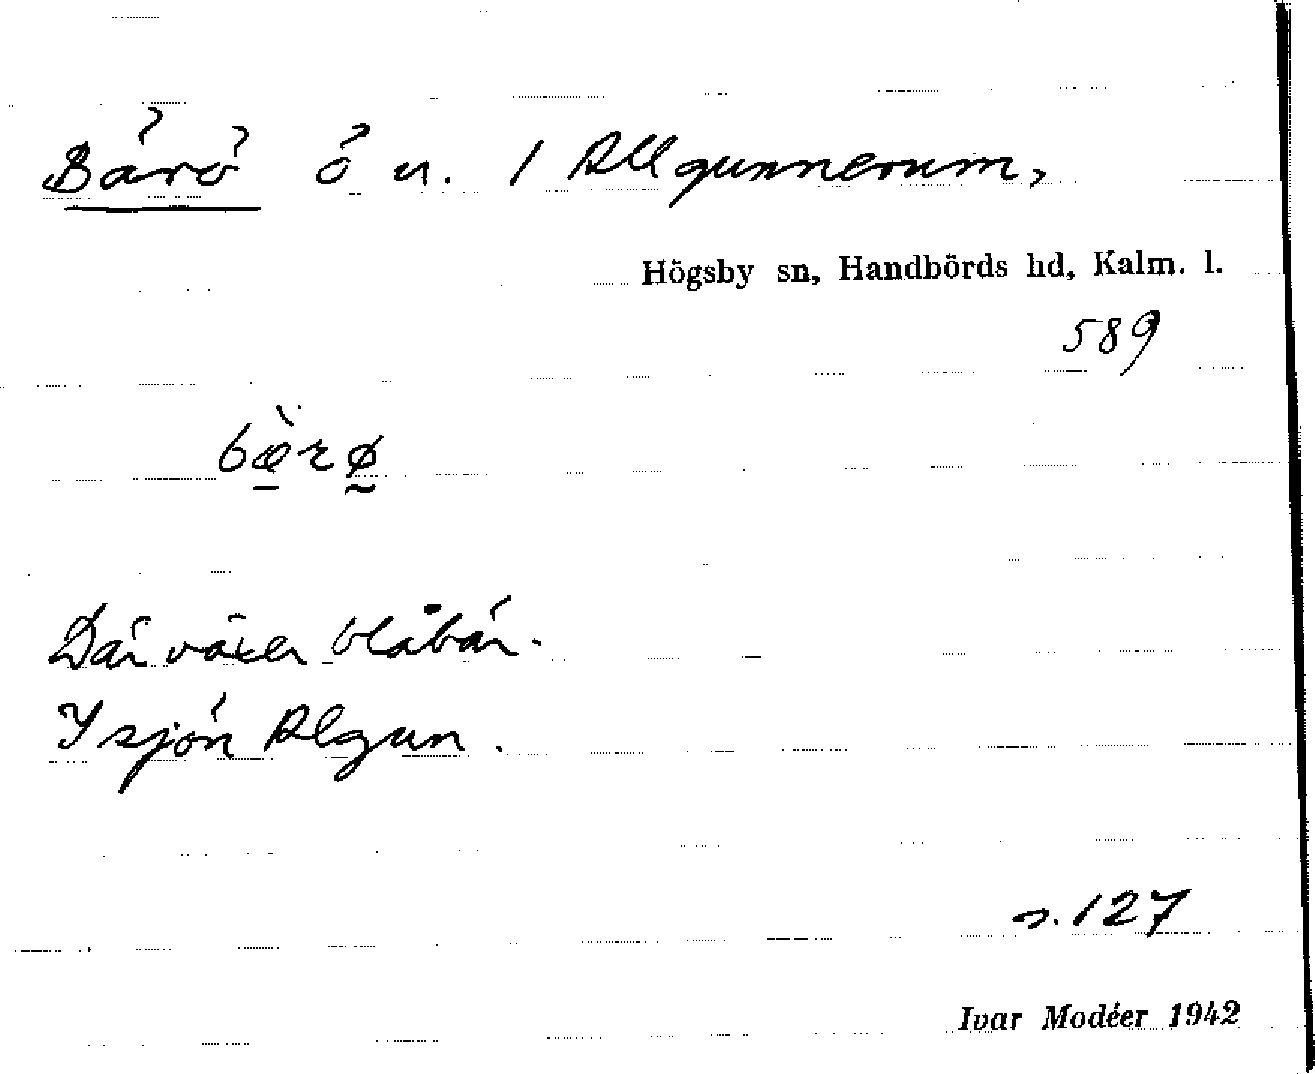 Bärö ö n. / Allgunnerum,
Högsby sn, Handbörds hd, Kalm. l.
589
bæ̀rø
Där växer blåbär.
I sjön Algun.
s. 127
Ivar Modéer 1942